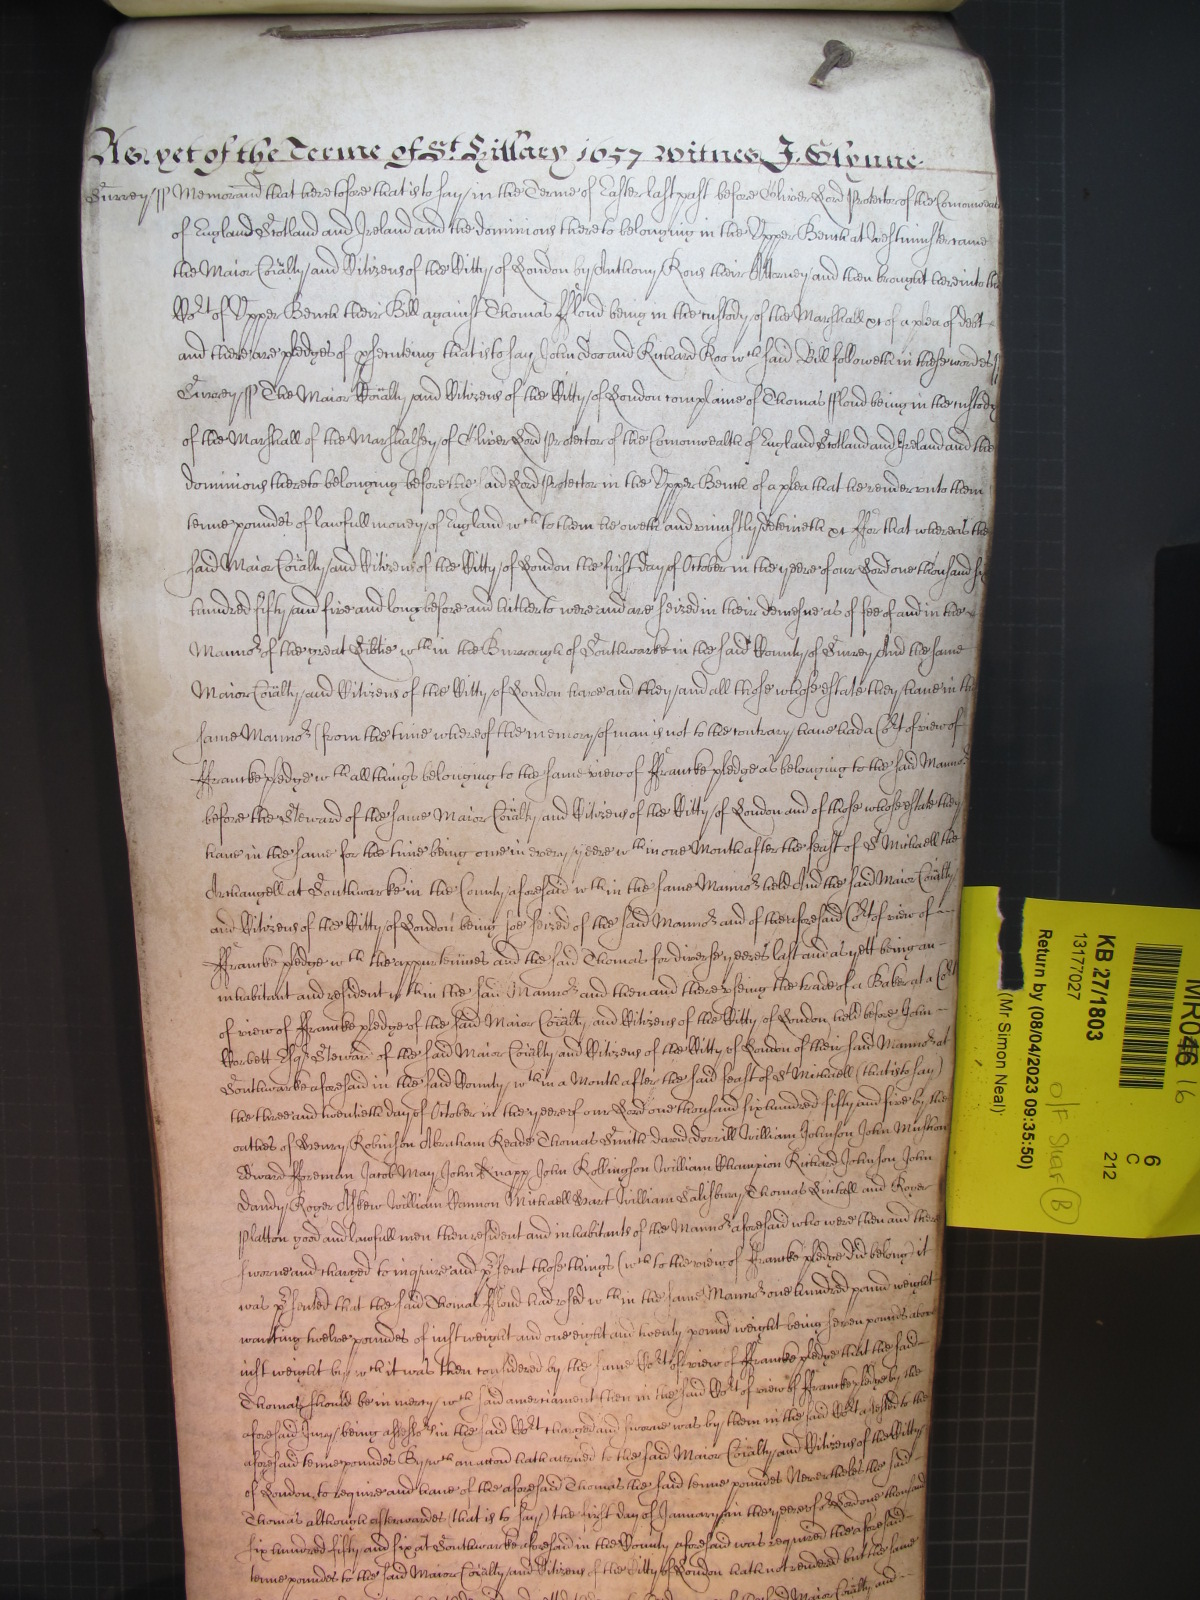 As yet of the Terme of St. Hillary 1657 Witnes J. Glynne
Surrey ss Memorand that heretofore that is to say in the Terme of Easter last past before Oliver Lord Protector of the Comonwealth
of England Scotland and Ireland and the dominions thereto belonging in the Upper Bench at Westminster came
the Maior Coialty and Citizens of the Citty of London by Anthony their Attorney and then brought here into the
Cort of Upper Bench their Bill against Thomas fflood being in the custody of the Marshall &c of a plea of debt
and there are pledges of psecuteing that is to say John Doo and Richard Roo wch said Bill followeth in these wordes ss
Surrey ss The Maior Coialty and Citizens of the Citty of London complaine of Thomas fflood being in the custody
of the Marshall of the Marshalsey of Oliver Lord Protector of the Comonwealth of England Scotland and Ireland and the
dominions thereto belonging before the said Lord Protector in the Upper Bench of a plea that he render unto them
tenne poundes of lawfull money of England wch to them he oweth and uniustly deteineth &c ffor that whereas the
said Maior Coialty and Citizens of the Citty of London the first day of October in the yeere of our Lord one thousand six
hundred fifty and five and long before and hitherto were and are seized in their demesne as of fee of and in the
Mannor of the great Liblie wthin the Burrough of Southwarke in the said County of Surrey And the same
Maior Coialty and Citizens of the Citty of London have and they and all those whose estate they have in the
same Mannor (from the time whereof the memory of man is not to the contrary) have had a Cort of view of
ffrancke pledge wth all things belonging to the same view of ffrancke pledge as belonging to the said Mannor
before the Steward of the same Maior Coialty and Citizens of the Citty of London and of those whose estate they
have in the same for the time being once in every yeere wthin one Month after the feast of St Michaell the
Archangell at Southwarke in the County aforesaid wthin the same Mannor held And the said Maior Coialty
and Citizens of the Citty of London being soe seized of the said Mannor and of the aforesaid Cort of view of
ffrancke pledge wth the appurtennces and the said Thomas for diverse yeeres last and as yett being an
inhabitant and resident wthin the said Mannor and then and there useing the trade of a Baker at a Cort
of view of ffrancke pledge of the said Maior Coialty and Citizens of the Citty of London held before John
Corbett Esqr Steward of the said Maior Coialty and Citizens of the Citty of London of their said Mannor at
Southwarke aforesaid in the said County wthin a Month after the said feast of St Michaell (that is to say)
the three and twentieth day of October in the yeere of our Lord one thousand six hundred fifty and five by the
oathes of Henry Robinson Abraham Reade Thomas Smith David Dorrill William Johnson John Mustion
Edward fforeman Jacob May John Knapp John Kollingson William Champion Richard Johnson John
Dandy Roger Askew William Cannon Michaell Hart William Salisbury Thomas and Roger
Platton good and lawfull men then resident and inhabitants of the Mannor aforesaid who were then and there
sworne and charged to inquire and psent those things (wch to the view of ffrancke pledge did belong) it
was psented that the said Thomas fflood had used wthin the same Mannor one hundred pound weight
wanting twelve poundes of iust weight and one eight and twenty pound weight being seven poundes above
iust weight by wch it was then considered by the same Cort of view of ffrancke pledge that the said
Thomas should be in mercy wch said amerciament then in the said Cort of view of ffrancke pledge by the
aforesaid Jury being assessors in the said Cort charged and sworne was by them in the said Cort assessed to the
aforesaid tenne poundes By wch an accon hath accrued to the said Maior Coialty and Citizens of the Citty
of London to require and have of the aforesaid Thomas the said tenne poundes Nevertheles the said
Thomas although afterwardes (that is to say) the first day of January in the yeere of or Lord one thousand
six hundred fifty and six at Southwarke aforesaid in the County aforesaid was required the aforesaid
tenne poundes to the said Maior Coialty and Citizens of the Citty of London hath not rendered but the same
Maior Coialty and
MR046 16
6
C
212
KB 27/1803
13177027
Return by (08/04/2023 09:35:50)
(Mr Simon Neal)
B